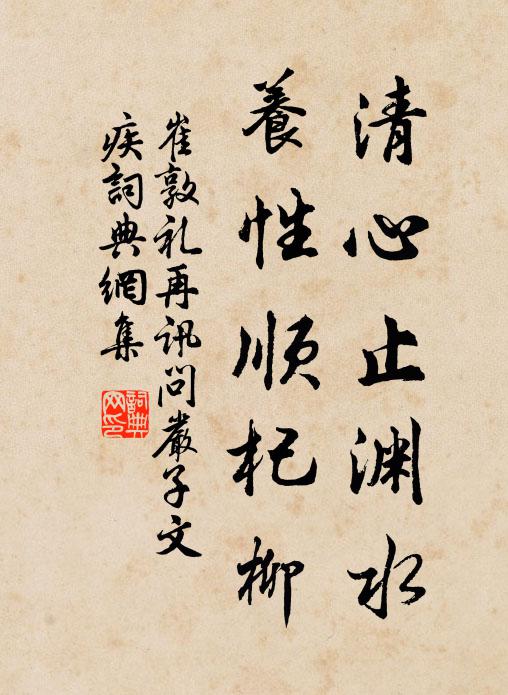 清心止渊水
養性顺杞柳
崔敦礼再讯問嚴子文
疾詞典網集
詞典网印